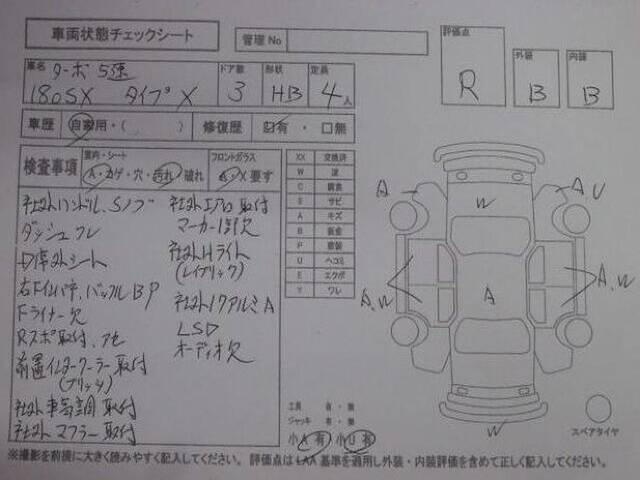 車両状態チェックシート
管理No
評価点
R
外装
B
内装
B
車名 ターボ 5速
180SX タイプX
ドア数
3
形状
HB
定員
4人
車歴 自家用・( )
修復歴 ☑有・□無
検査事項
室内・シート
A・コゲ・穴・汚れ・破れ
フロントガラス
A・X要す
XX 交換済
W 波
C 腐食
S サビ
A キズ
B 板金
P 塗装
U ヘコミ
E エクボ
Y ワレ
社外ハンドル、Sノブ
ダッシュワレ
D席外シート
右Fインパネ、バックルBP
Fライナー欠
Rスポ取付、アセ
前置インタークーラー取付
(ブリッツ)
社外車高調取付
社外マフラー取付
社外エアロ取付
マーカー1ヶ欠
社外Hライト
(レイブリック)
社外17アルミA
LSD
オーディオ欠
A
W
A U
A、W
A
A、W
W
工具 有・無
ジャッキ 有・無
小A有 小U有
スペアタイヤ
※撮影を前提に大きく読みやすく記入してください。 評価点はLAA基準を適用し外装・内装評価を含めて正しく記入してください。